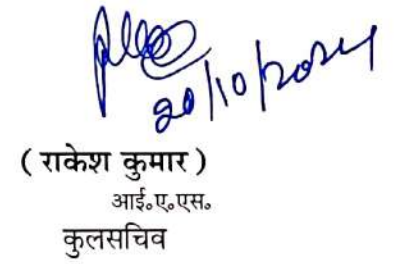 20/10/2024
( राकेश कुमार )
आई॰ए॰एस॰
कुलसचिव